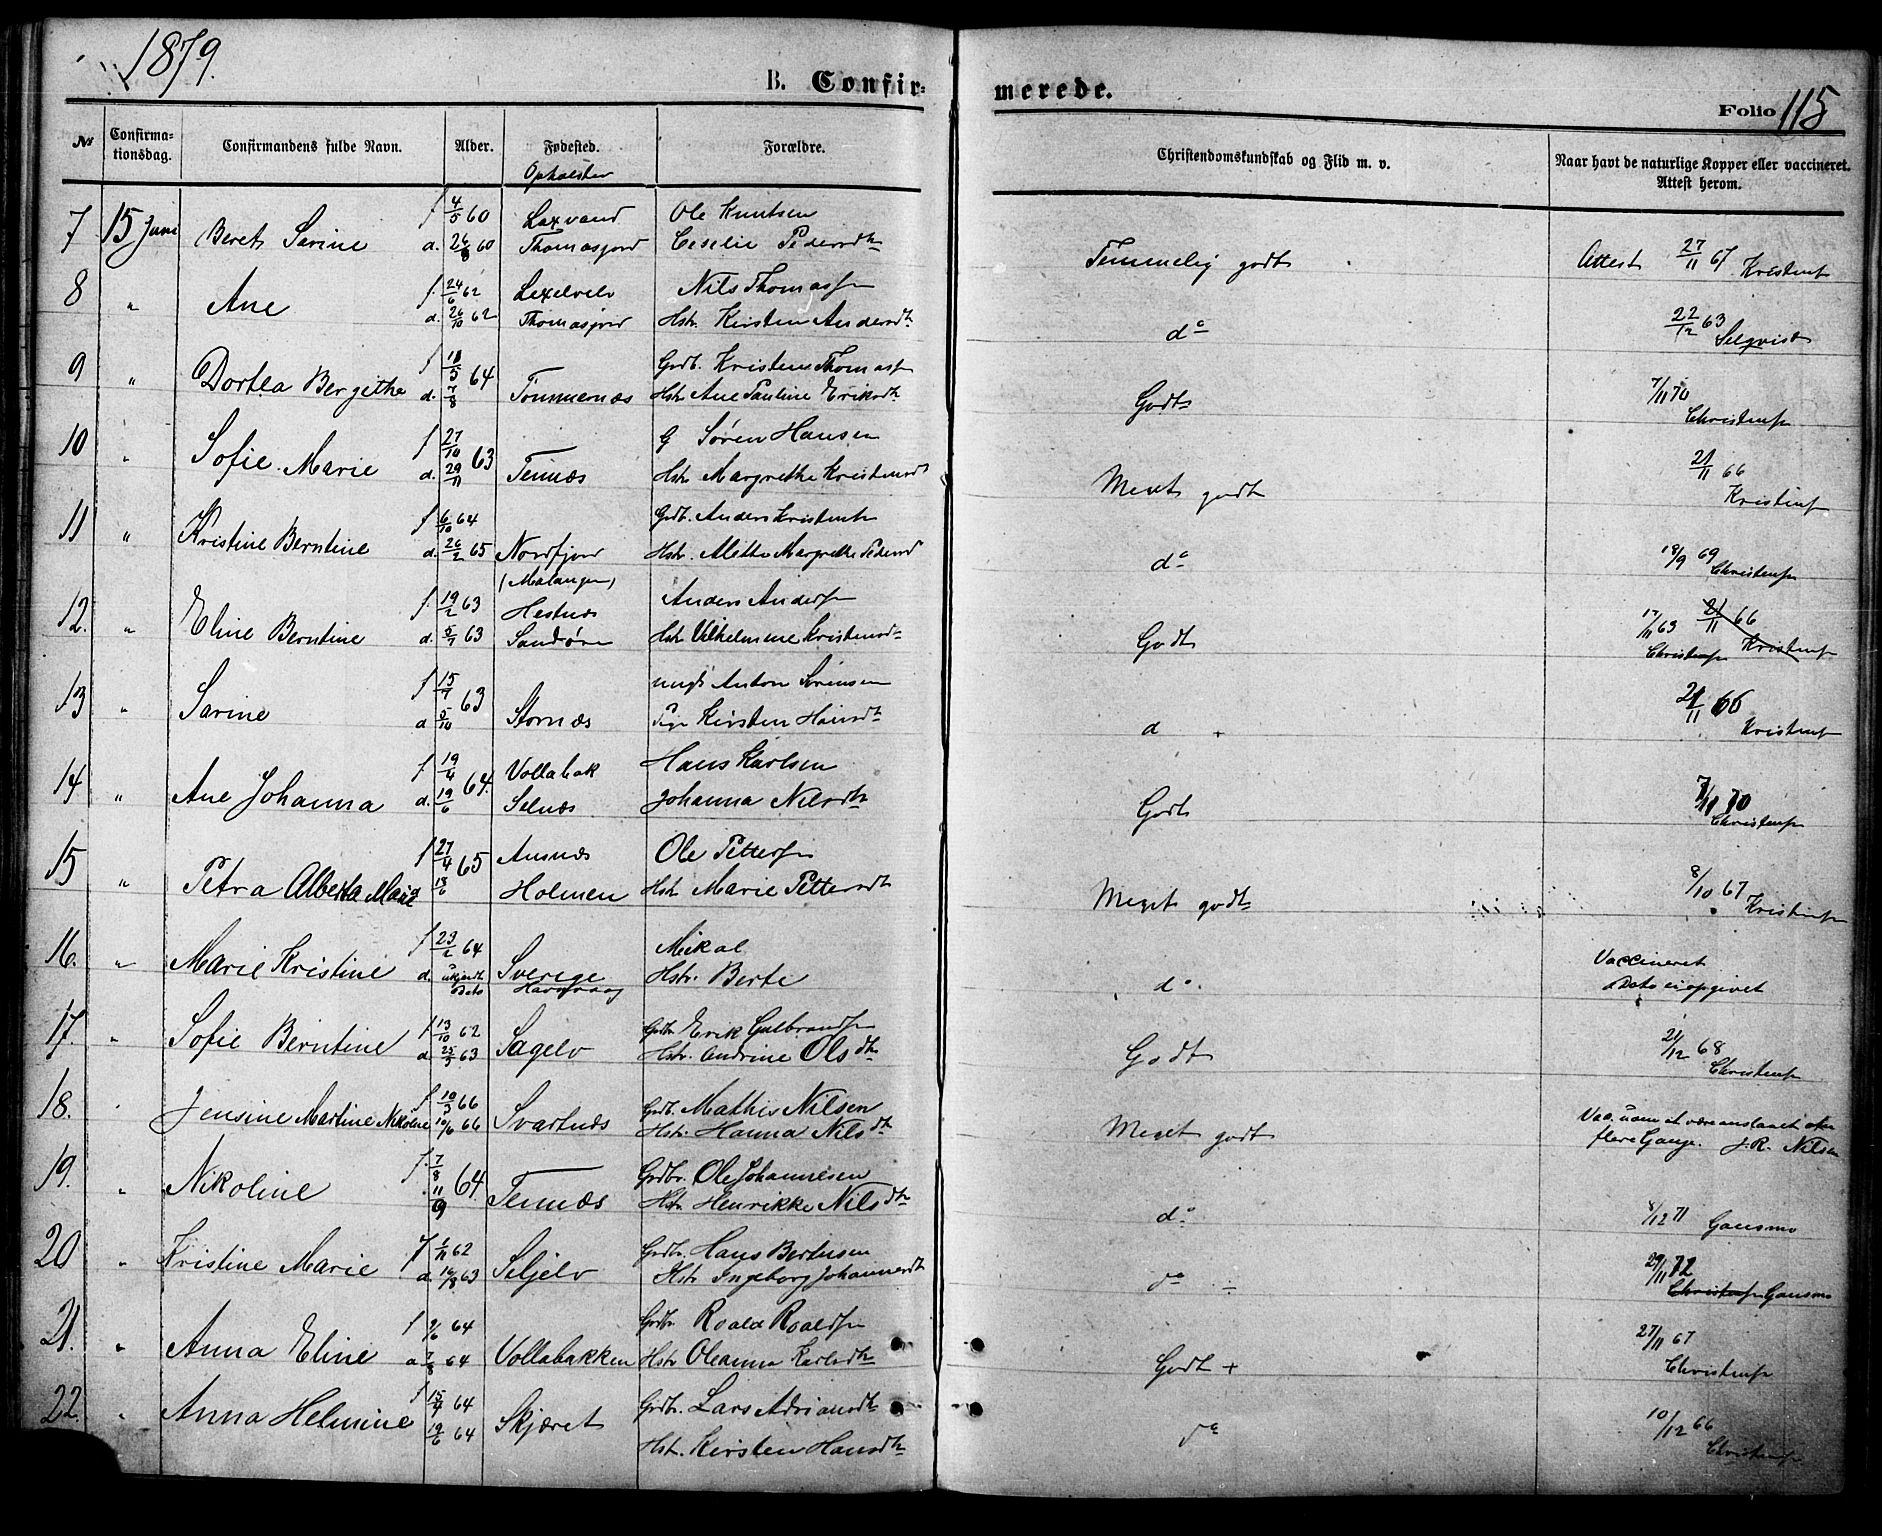 1879.
B. Confir-
merede.
Folio 115
No
Confirma-
tionsdag.
Confirmandens fulde Navn.
Alder.
Fødested.
Forældre.
Christendomskundskab og Flid m. v.
Naar havt de naturlige Kopper eller vaccineret.
Attest herom.
7 15 Juni Beret Sarine f 4/5 60 Laxvand Ole Knutsen
d. 26/8 60 Thomasjord Cecelie Pedersdtr
Temmelig godt Attest 27/11 67 Kristensen
8 " Ane f. 24/6 62 Lexelvelv Nils Thomassen
d. 26/10 62 Thomasjord Hstr. Kirsten Andersdtr.
do 22/12 63 Selqvist
9 " Dortea Bergithe f 18/5 64 Tømmernæs Gdb. Kristen Thomassen
d. 7/8 Hstr Ane Pauline Eriksdtr.
Godt 7/11 70 Christensen
10 " Sofie Marie f 27/10 63 Tennæs G Søren Hansen
d. 29/11 Hstr. Margrethe Kristensdt
Meget godt 21/11 66 Kristensen
11 " Kristine Berntine f 6/10 64 Gdb. Anders Kristensen
d. 26/2 65 Nordfjord Hstr. Mette Margrethe Pedersd
(Malangen)
do 18/9 69 Christensen
12. " Eline Berntine f. 19/2 63 Hestnes Anders Andersen
d. 5/7 63 Sandøren Hstr Vilhelmine Kristensdtr
Godt 17/11 63 Christensen 21/11 66 Kristensen
13 " Sarine f 15/7 63 Stornæs ungk Anton Sørensen
d 5/10 Pige Kirsten Hansdtr
d + 21/11 66 Kristensen
14 " Ane Johanna f 19/4 64. Vollabak Hans Karlsen
d. 19/6 Selnæs Johanna Nilsdtr
Godt 7/11 70 Christensen
15 " Petra Alberta Maria f 27/4 65 Ansnæs Ole Pettersen
18/6 Holmen Hstr Marie Pettersdt
Meget godt 8/10 67 Kristensen
16. " Marie Kristine f 23/2 64 Sverige Mikal
d. ukjendt Dato Hstr. Berte
do Vaccineret
Dato ei opgivet
17. " Sofie Berntine f 13/10 62 Sagelv Gdbr. Erik Gulbrandsen
d 25/3 63 Hstr. Andrine Olsdtr
Godt 21/12 68 Christensen
18. Jensine Martine Nikoline f 10/3 66 Svartnæs Gdb. Mathis Nilsen
10/6 66 Hstr. Hanna Nilsdt
Meget godt Vac. uden at være anslaaet
flere Gange. J. R. Nilsen
19. " Nikoline f. 7/8 64. Tennæs Gdbr. Ole Johannesen
11/9 Hstr. Henrikke Nilsdtr
do 8/12 71 Gausmo
20 " Kristine Marie f 1/11 62 Seljelv Gdbr. Hans Bertusen
d. 16/8 63 Hstr Ingeborg Johannesdt
do ÷ 29/11 72 Christensen Gausmo
21. " Anna Eline f 2/6 64 Gdb. Roald Roaldsen
d 7/8 64 Vollabakken Hstr Oleanna Karlsdtr
Godt + 27/11 67 Christensen
22. " Anna Helmine f 15/4 64 Skjæret Gdbr. Lars Adriansdtr
19/6 64 Hstr. Kirsten Hansdtr
do 10/12 66 Christensen